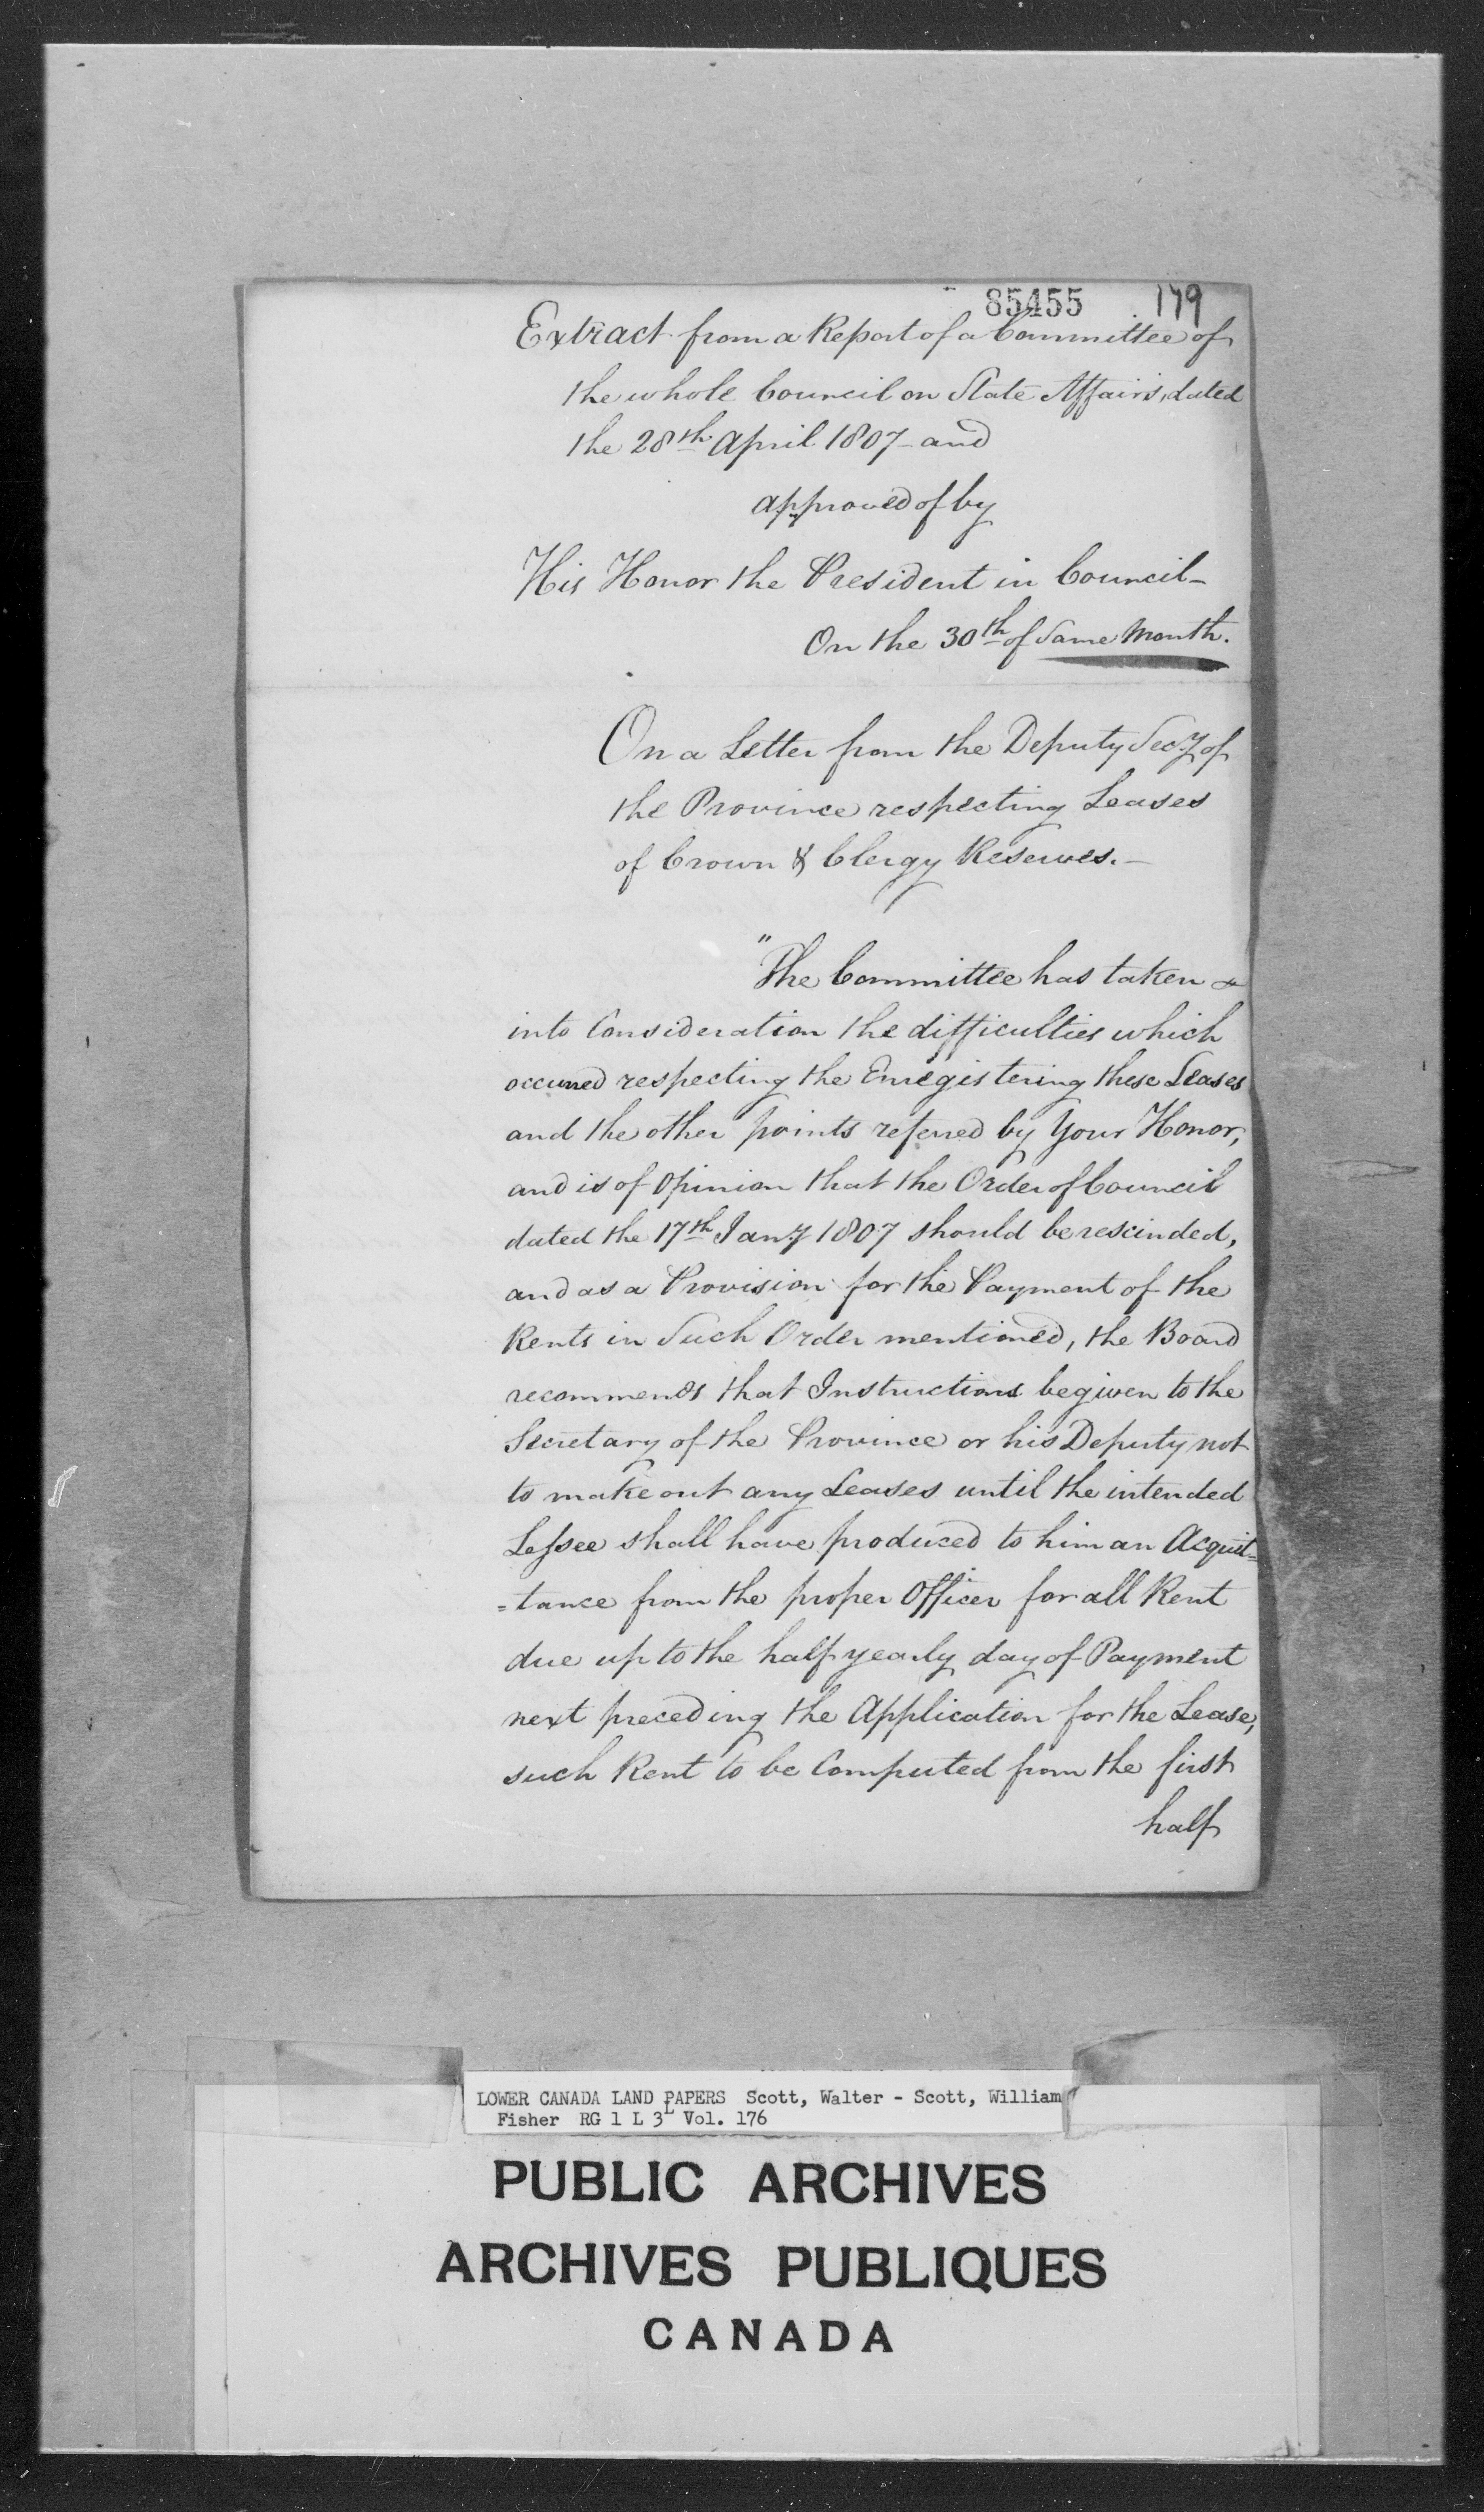 85455 179
Extract from a Report of a Committee of
the whole Council on State Affairs, dated
the 28th April 1807 - and
approved of by
His Honor the President in Council -
On the 30th of Same Month.
On a Letter from the Deputy Secy of
the Province respecting Leases
of Crown & Clergy Reserves. -
"The Committee has taken
into Consideration the difficulties which
occurred respecting the Enregistering these Leases
and the other points referred by Your Honor,
and is of Opinion that the Order of Council
dated the 17th Jany 1807 should be rescinded,
and as a Provision for the Payment of the
Rents in Such Order mentioned, the Board
recommends that Instructions be given to the
Secretary of the Province or his Deputy not
to make out any Leases until the intended
Lessee shall have produced to him an Acquit=
=tance from the proper Officer for all Rent
due up to the half yearly day of Payment
next preceding the Application for the Lease,
such Rent to be Computed from the first
half
LOWER CANADA LAND PAPERS Scott, Walter - Scott, William
Fisher RG 1 L 3L Vol. 176
PUBLIC ARCHIVES
ARCHIVES PUBLIQUES
CANADA